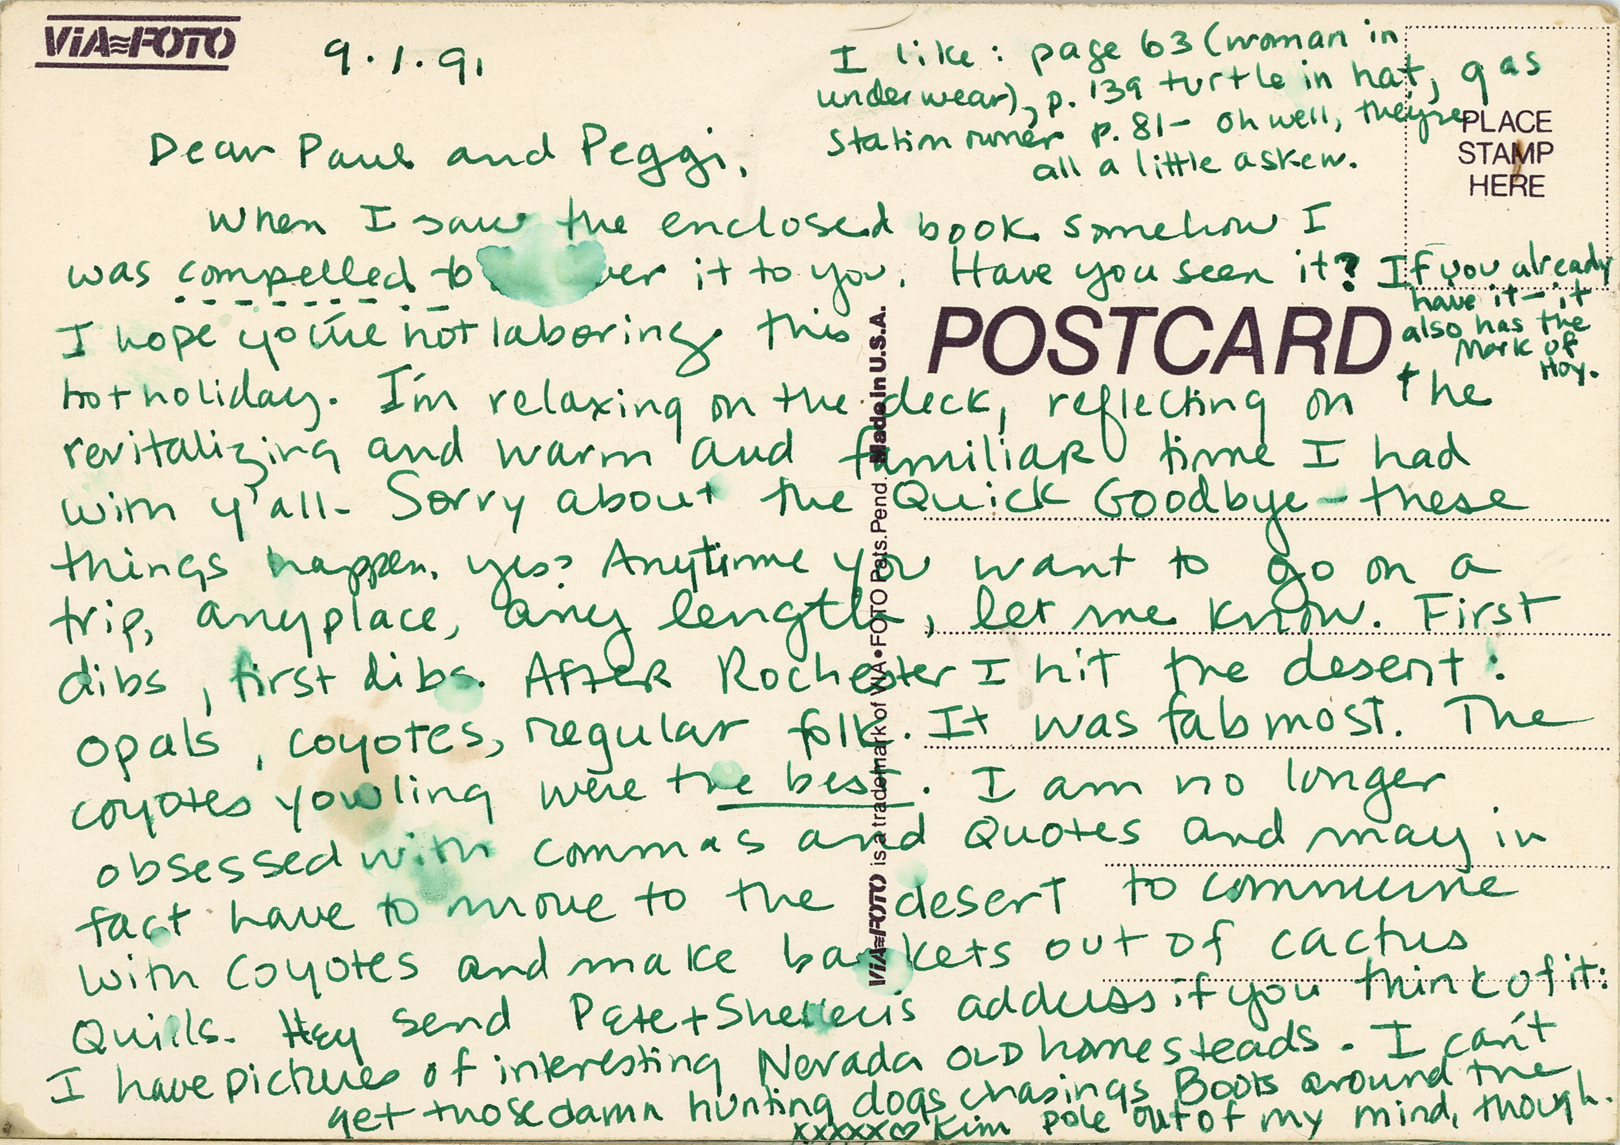 ViA≈FOTO
9.1.91
I like: page 63 (woman in
underwear), p. 139 turtle in hat, gas
Station owner p. 81 - Oh well, they're
all a little askew.
PLACE
STAMP
HERE
Dear Paul and Peggi,
When I saw the enclosed book somehow I
was compelled to ver it to you. Have you seen it? If you already
have it - it
also has the
Mark of
Hoy.
POSTCARD
I hope you're not laboring this
hot holiday. I'm relaxing on the deck, reflecting on the
revitalizing and warm and familiar time I had
with y'all - Sorry about the Quick Goodbye - these
things happen, yes? Anytime you want to go on a
trip, anyplace, any length, let me know. First
dibs, first dibs. After Rochester I hit the desert:
opals, coyotes, regular folk. It was fab most. The
coyotes yowling were the best. I am no longer
obsessed with commas and Quotes and may in
fact have to move to the desert to commune
with coyotes and make baskets out of cactus
Quills. Hey send Pete + Shelley's address if you think of it:
I have pictures of interesting Nevada OLD homesteads. I can't
get those damn hunting dogs chasing Boots around the
pole out of my mind, though.
xxxxx♡ Kim
ViA≈FOTO is a trademark of VIA•FOTO Pats. Pend. Made in U.S.A.